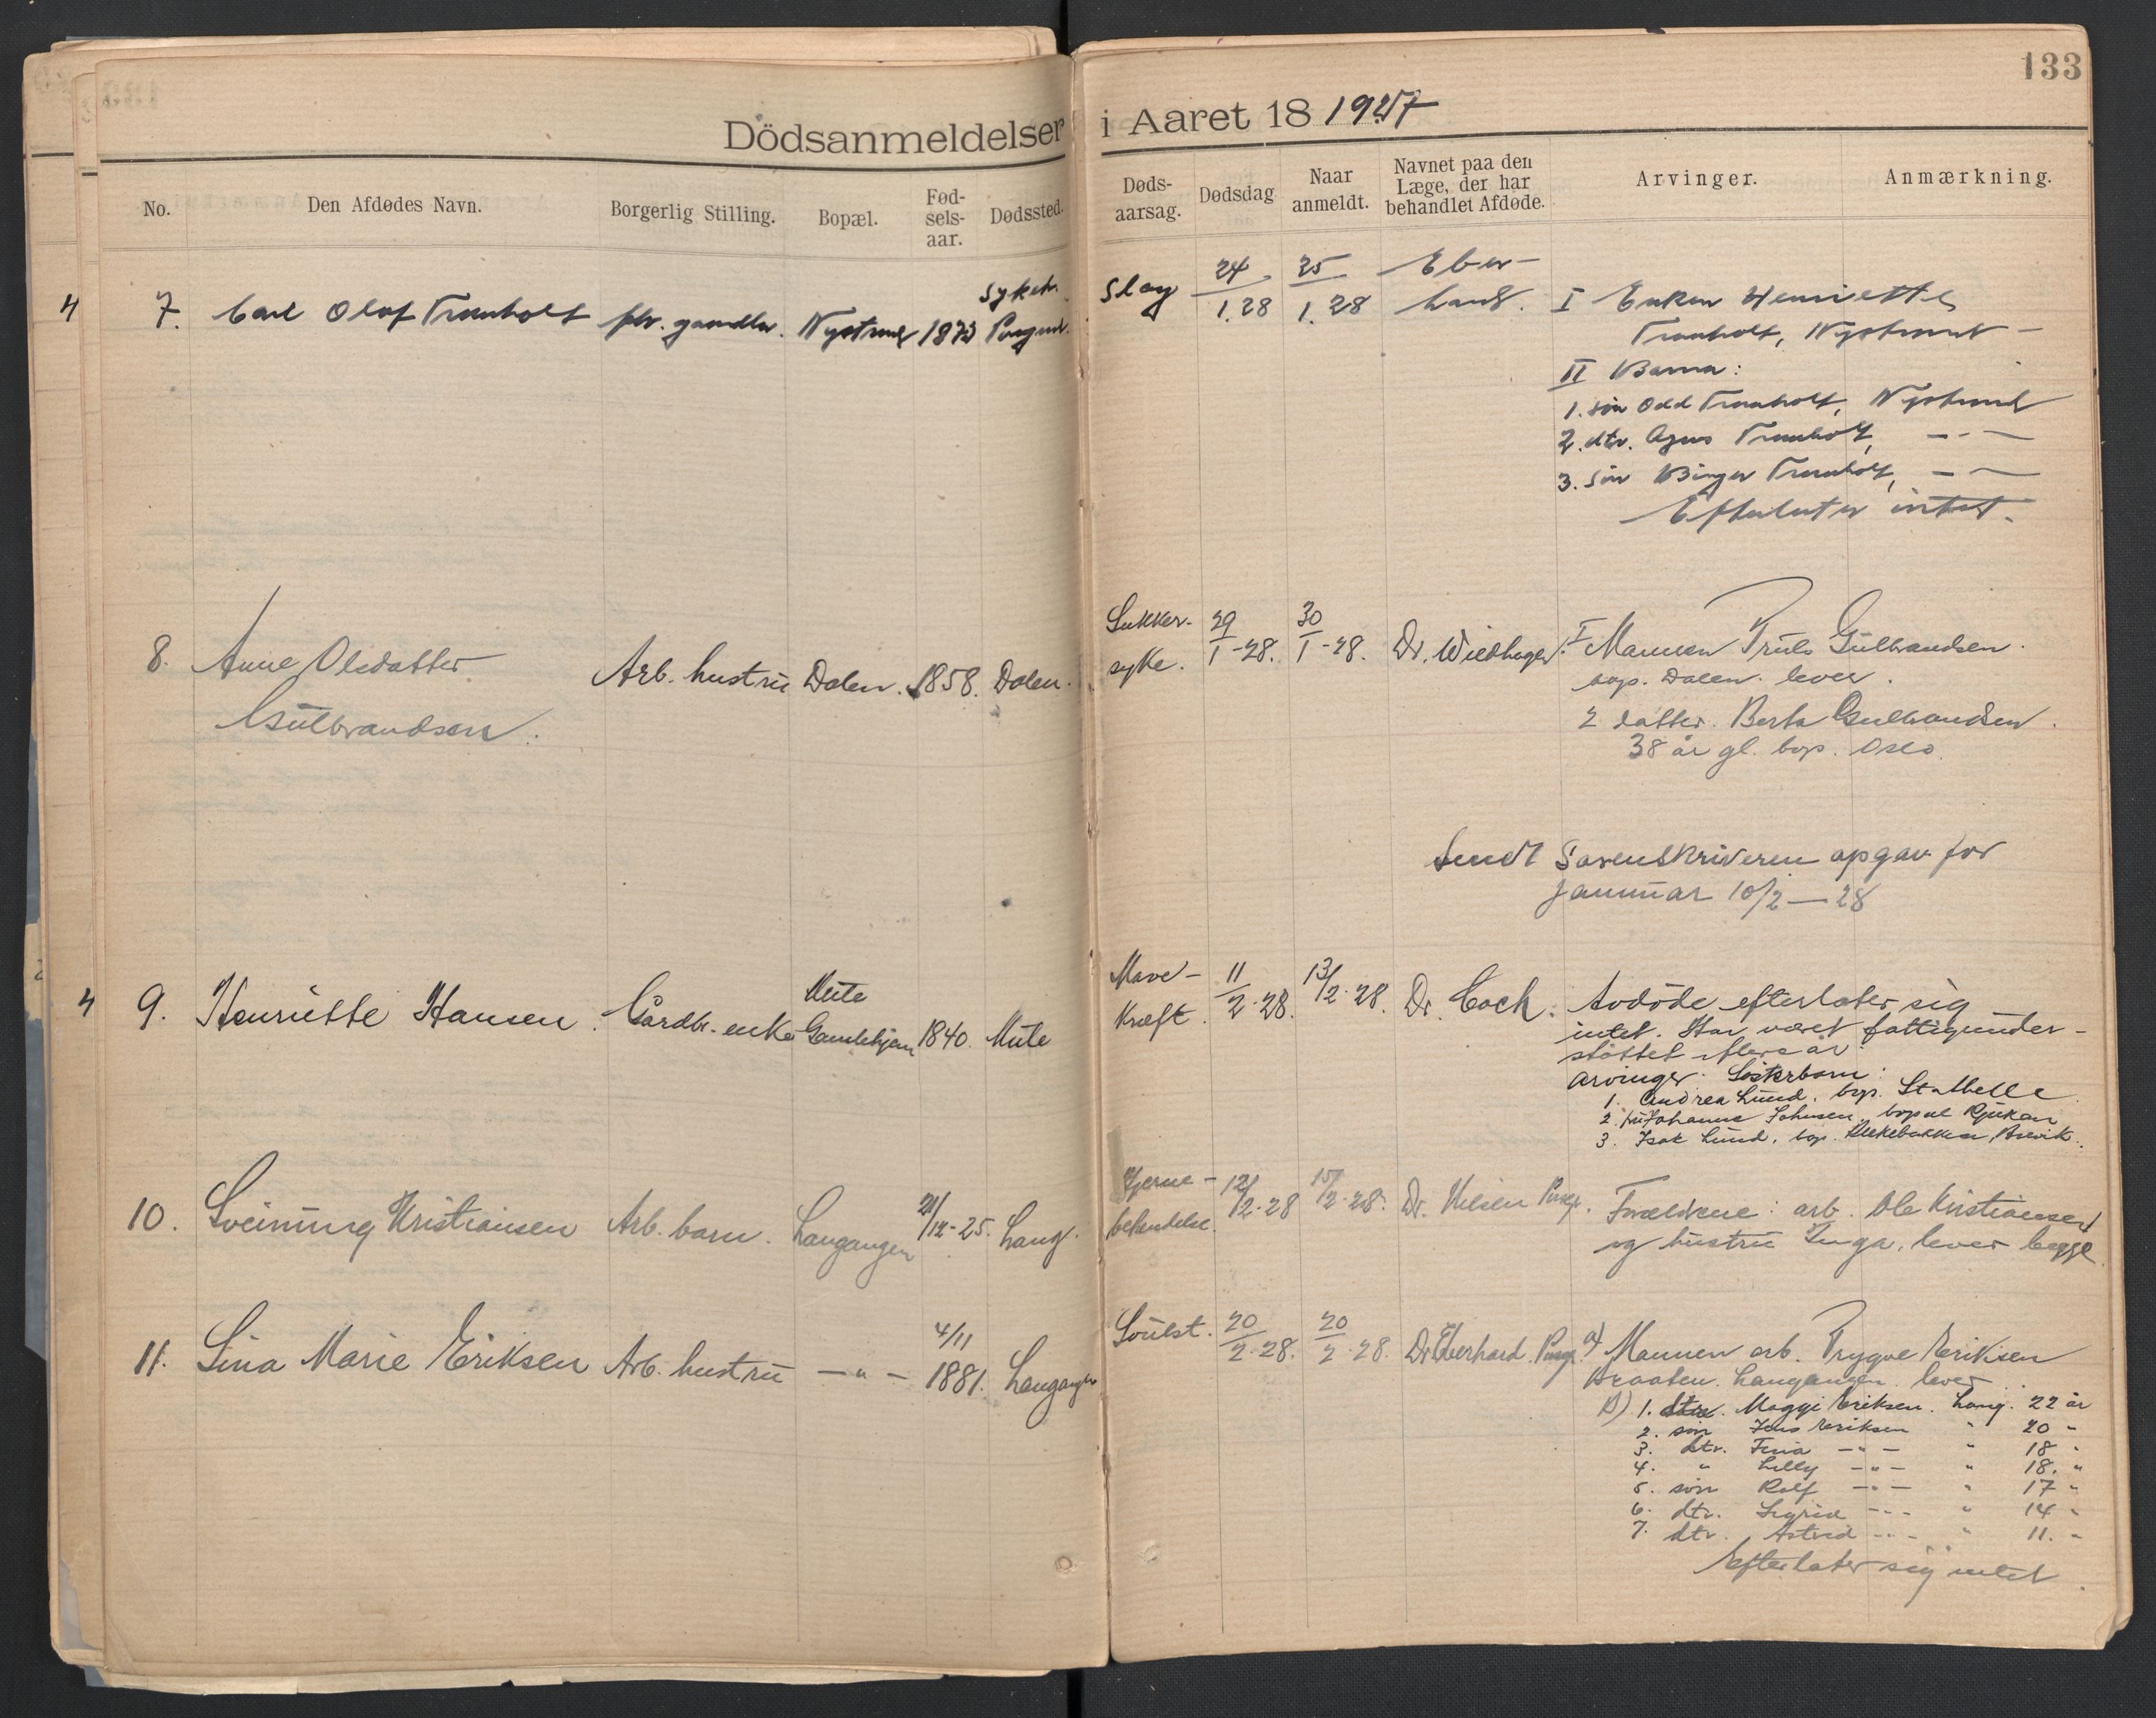 133
Dödsanmeldelser i Aaret 18 1927
No.
Den Afdødes Navn.
Borgerlig Stilling.
Bopæl.
Fød-
sels-
aar.
Dødssted.
Døds-
aarsag.
Dødsdag
Naar
anmeldt.
Navnet paa den
Læge, der har
behandlet Afdøde.
Arvinger.
Anmærkning.
4
7. Carl Olaf Tromholt
1873
Slag
24/1.28
25/1.28
Eber-
hard.
I Enken Henriette
Tromholt, Nystrand
II Barna:
1. søn Odd Tromholt, Nystrand
2. dtr. Agnes Tromholt, - " -
3. Søn Birger Tromholt, - " -
Efterlater intet.
8. Anne Olsdatter
Gulbrandsen.
Arb. hustru
Dalen.
1858.
Dalen.
Sukker-
syke.
29/1-28.
30/1-28.
Dr. Wiedhager.
I Mannen Truls Gulbrandsen.
bop. Dalen. lever.
2 datter. Berta Gulbrandsen.
38 år gl. bop. Oslo.
Sendt Sorenskriveren opgav for
januar 10/2 — 28
4
9. Henriette Hansen.
Gårdbr. enke
Mule
Gamlehjem
1840.
Mule
Mave-
kræft.
11/2-28.
13/2-28.
Dr. Coch.
Avdöde efterlater sig
intet. Har været fattigunder-
støttet i flere år.
Arvinger: Søsterbarn:
1. Andrea Lund, bop. Stathelle
2. fru Johanne Johnsen, bopæl Rjukan
3. Isak Lund, bop. Brevik.
10. Sveinung Kristiansen
Arb. barn.
Langangen
21/12-25.
Lang.
Hjerne-
betendelse.
12/2-28
15/2-28.
Dr. Nilsen Porsgr.
Foreldrene: arb. Ole Kristiansen
og hustru Inga, lever begge
11. Lina Marie Eriksen
Arb. hustru
- " -
4/11
1881.
Langangen
Svulst.
20/2-28.
20/2-28.
Dr Eberhard Porsgr.
a) Mannen arb. Trygve Eriksen
Braaten. Langangen. lever.
b) 1. dtr. Maggi Eriksen. Lang. 22 år
2. søn Jens Eriksen " 20 "
3. dtr. - " - " 18 "
4. " Lilly - " - " 18. "
5. søn Rolf - " - " 17 "
6. dtr. Sigrid - " - " 14 "
7. dtr. Astrid - " - " 11. "
Efterlater sig intet.